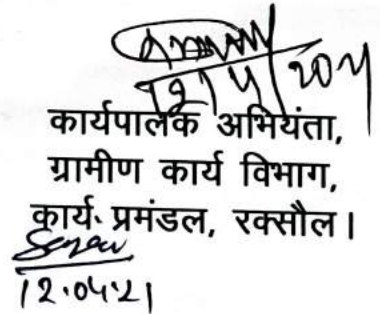 कार्यपालक अभियंता,
ग्रामीण कार्य विभाग,
कार्य॰ प्रमंडल, रक्सौल।
12.04.21